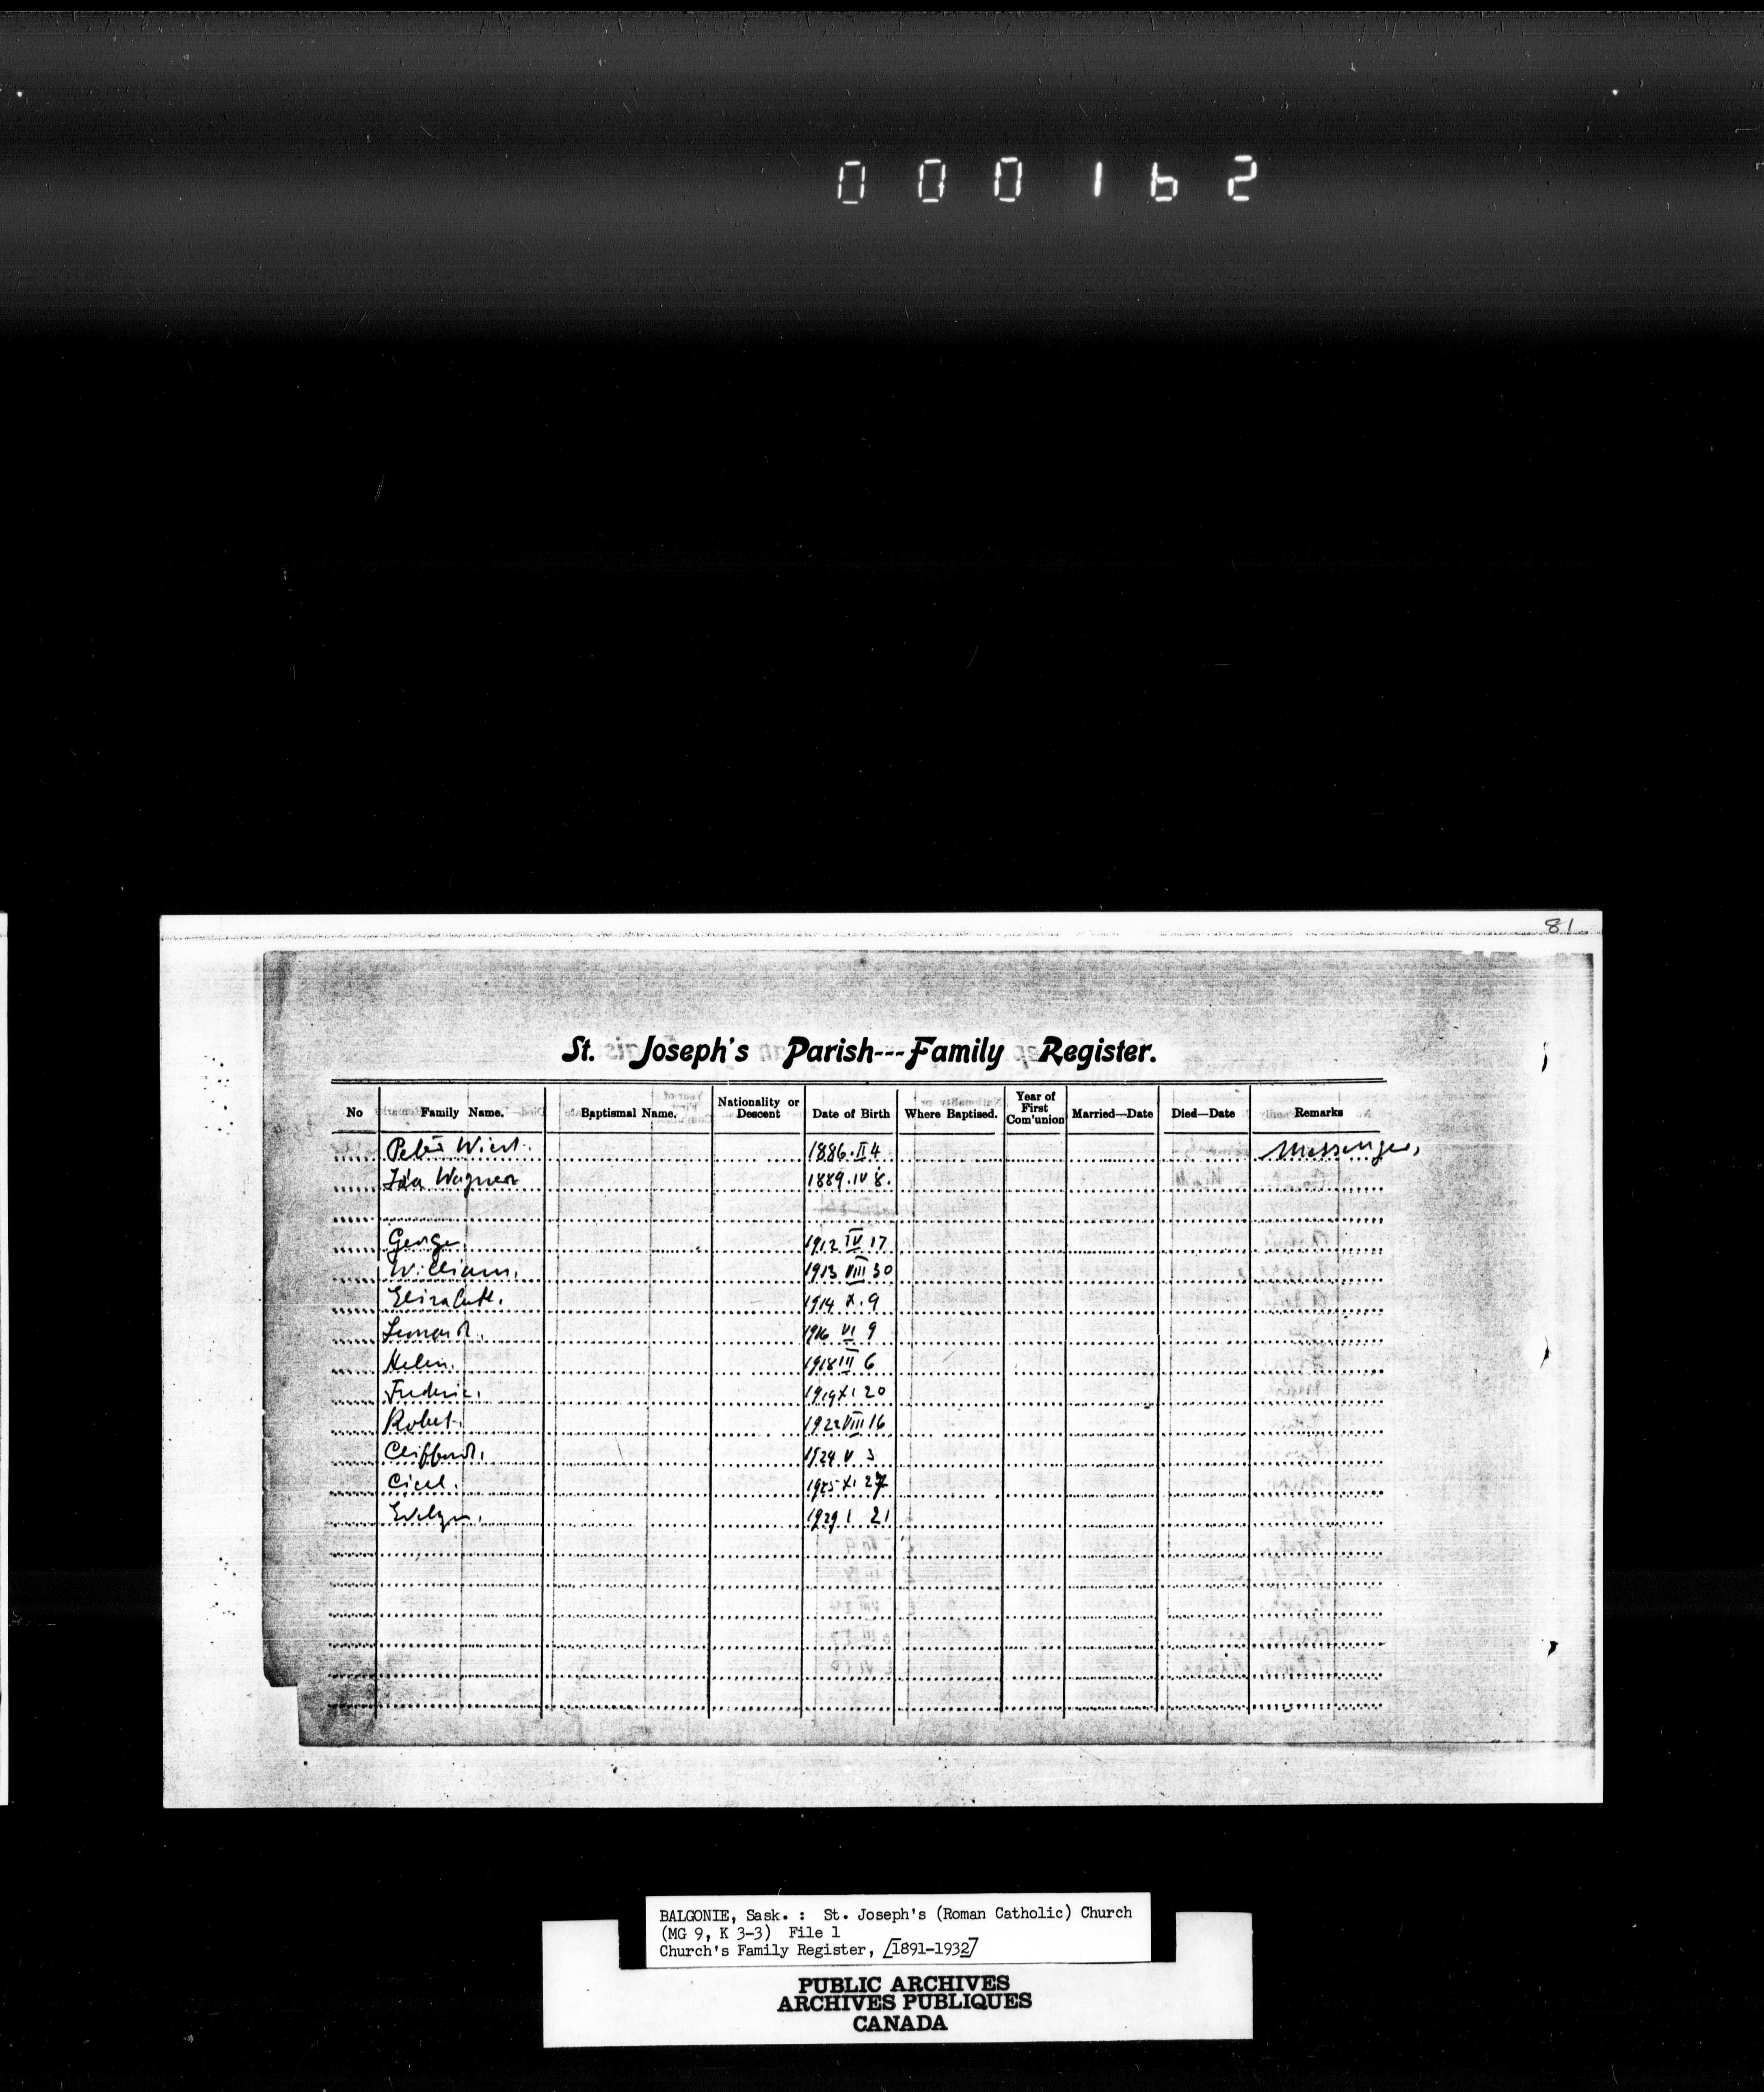 000162
81.
St. Joseph's Parish---Family Register.
No Family Name. Baptismal Name. Nationality or Descent Date of Birth Where Baptised. Year of First Com'union Married—Date Died—Date Remarks
Peter Wirt. 1886.II 4 Messenger,
Ida Wagner 1889.IV 8.
George. 1912 IV 17
William. 1913 VIII 30
Elizabeth. 1914 X. 9
Leonard. 1916 VI 9
Helen. 1918 III 6
Frederic. 1919 XI 20
Robert. 1922 VIII 16
Clifford. 1924 V 3
Cicel. 1925 XI 27
Evelyn. 1929 I 21
BALGONIE, Sask. : St. Joseph's (Roman Catholic) Church
(MG 9, K 3-3) File 1
Church's Family Register, [1891-1932]
PUBLIC ARCHIVES
ARCHIVES PUBLIQUES
CANADA